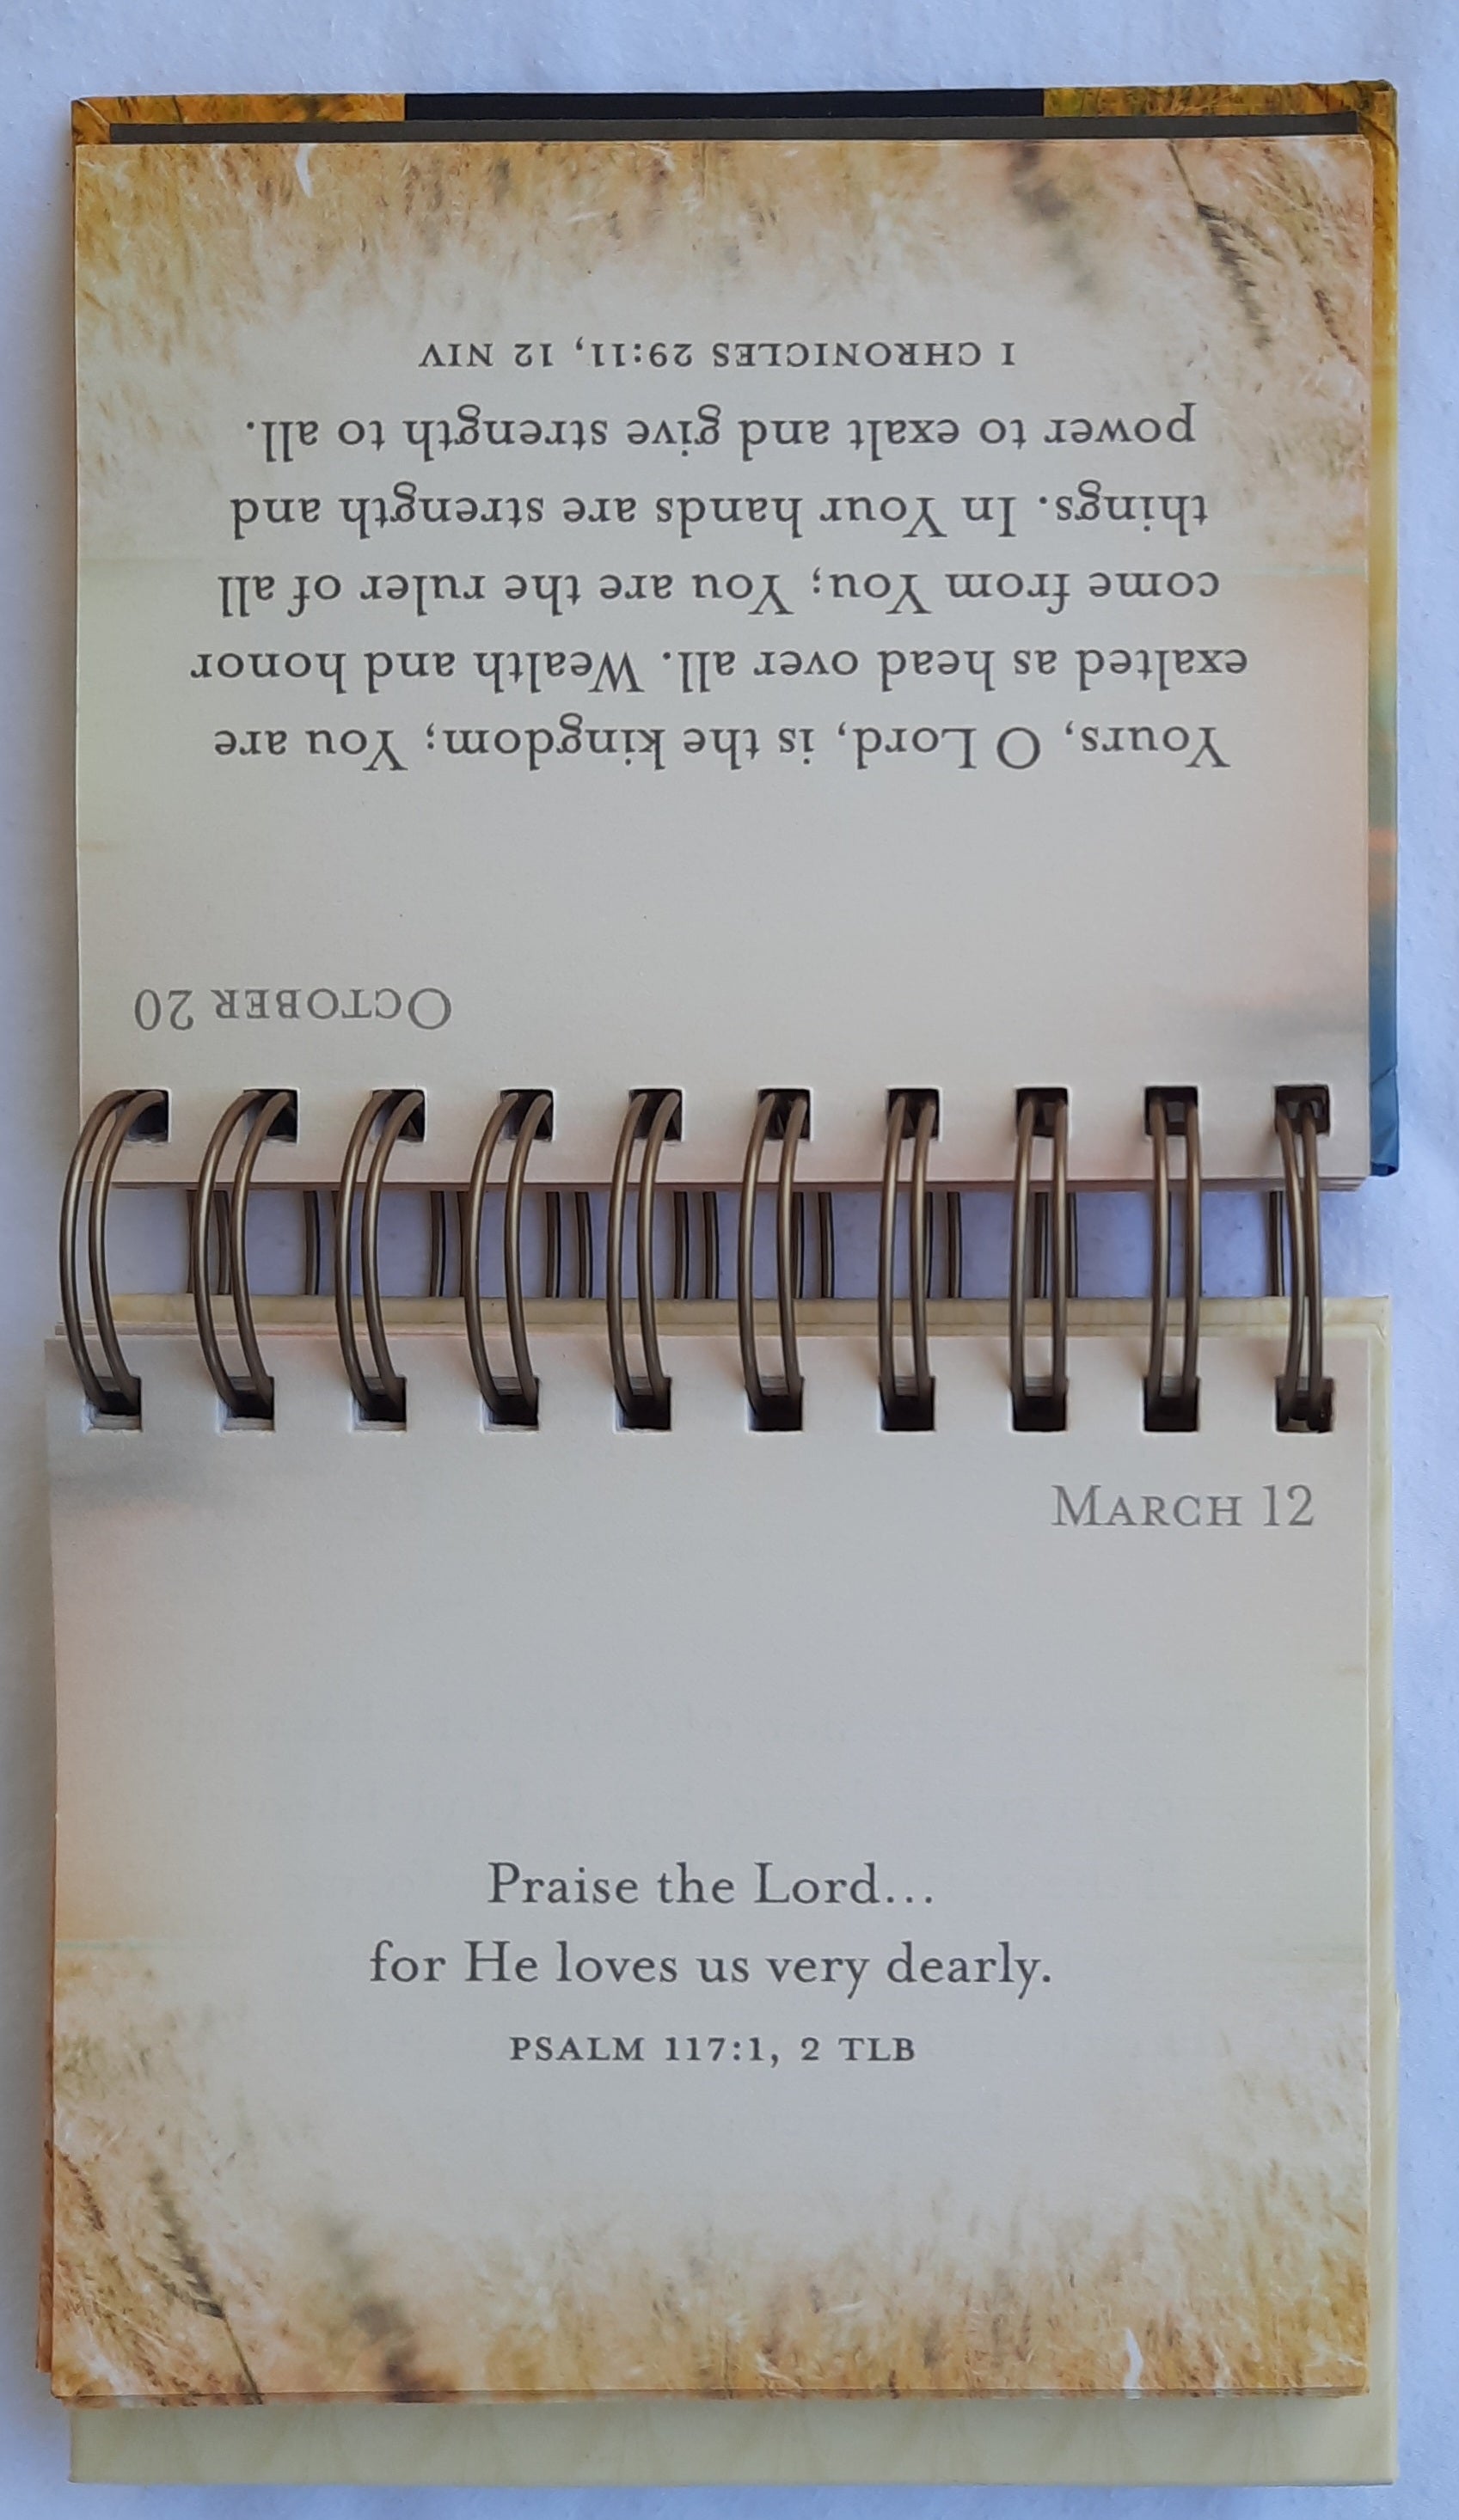 October 20
Yours, O Lord, is the kingdom; You are
exalted as head over all. Wealth and honor
come from You; You are the ruler of all
things. In Your hands are strength and
power to exalt and give strength to all.
I CHRONICLES 29:11, 12 NIV
March 12
Praise the Lord…
for He loves us very dearly.
PSALM 117:1, 2 TLB